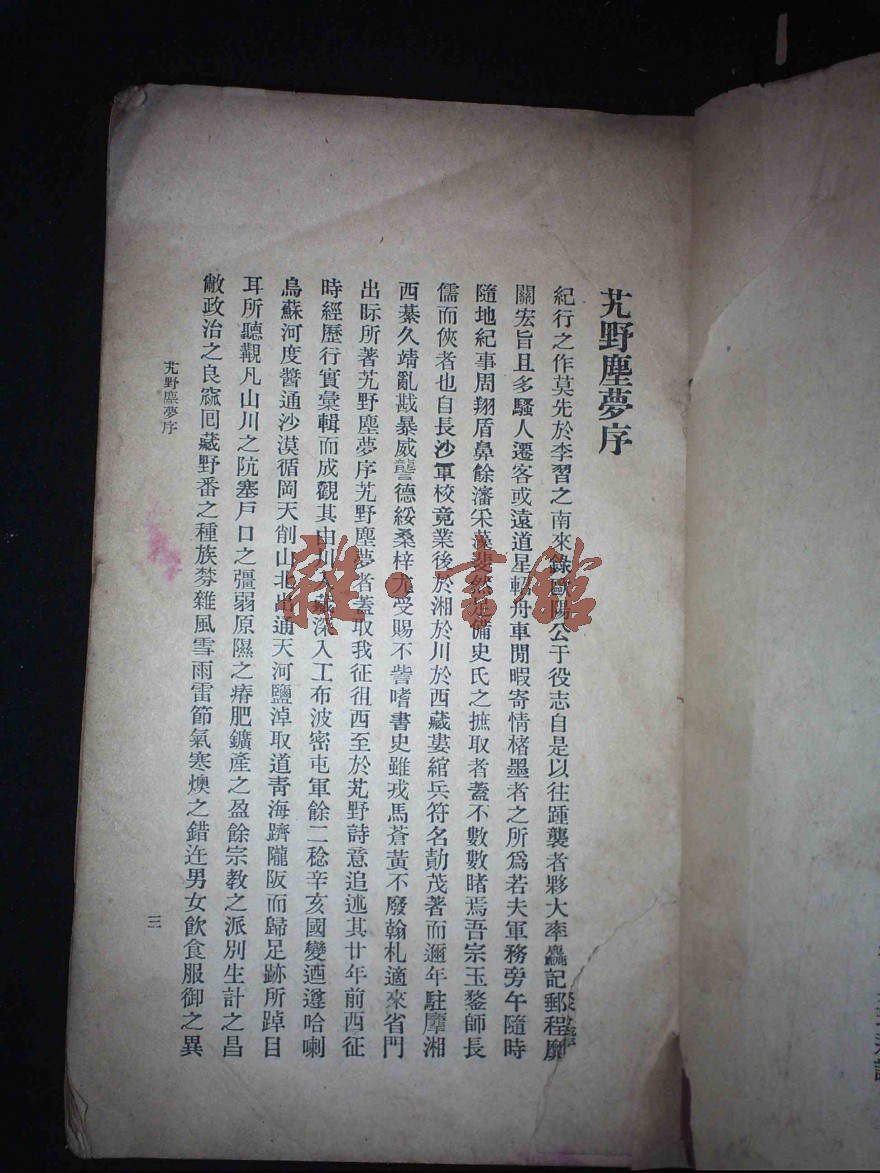 艽野塵夢序
紀行之作莫先於李習之南來錄歐陽公于役志自是以往踵襲者夥大率麤記郵程靡
關宏旨且多騷人遷客或遠道星軺舟車閒暇寄情楮墨者之所爲若夫軍務旁午隨時
隨地紀事周翔盾鼻餘瀋采藻斐然足備史氏之摭取者蓋不數數睹焉吾宗玉鍪師長
儒而俠者也自長沙軍校竟業後於湘於川於西藏婁綰兵符名勣茂著而邇年駐㕓湘
西綦久靖亂戡暴威讋德綏桑梓尤受賜不訾嗜書史雖戎馬蒼黃不廢翰札適來省門
出眎所著艽野塵夢序艽野塵夢者蓋取我征徂西至於艽野詩意追述其廿年前西征
時經歷行實彙輯而成觀其由川入藏深入工布波密屯軍餘二稔辛亥國變迺遵哈喇
烏蘇河度醬通沙漠循岡天削山北出通天河鹽淖取道靑海躋隴阪而歸足跡所踔目
耳所聽觀凡山川之阬塞戶口之彊弱原隰之瘠肥鑛產之盈餘宗教之派別生計之昌
敝政治之良窳囘藏野番之種族棼雜風雪雨雷節氣寒燠之錯迕男女飲食服御之異
艽野塵夢序
三
雜·書館